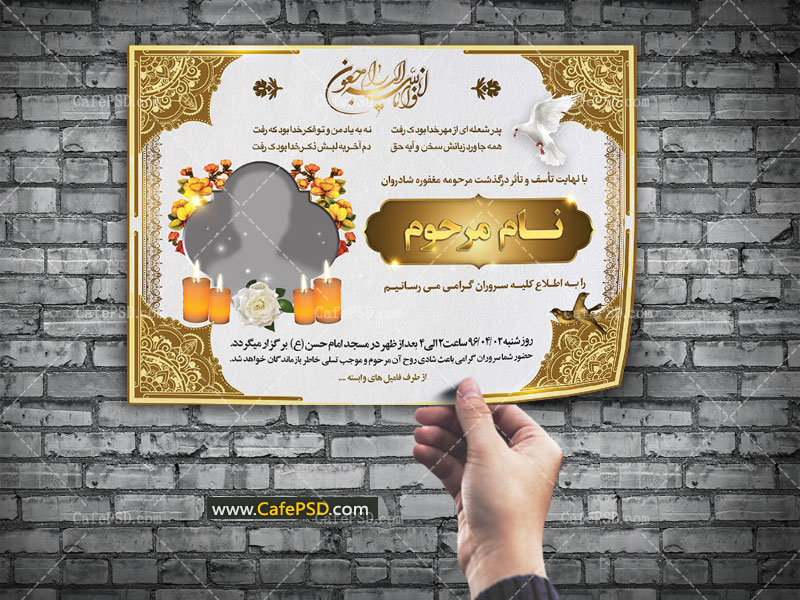 انا لله و انا الیه راجعون
پدر شعله ای از مهر خدا بود که رفت
نه به یاد من و تو فکر خدا بود که رفت
همه جا ورد زبانش سخن و آیه حق
دم آخر به لبش ذکر خدا بود که رفت
با نهایت تأسف و تأثر درگذشت مرحومه مغفوره شادروان
نام مرحوم
را به اطلاع کلیه سروران گرامی می رسانیم
روز شنبه ۹۶/۰۴/۰۲ ساعت ۲ الی ۴ بعد از ظهر در مسجد امام حسن (ع) برگزار میگردد.
حضور شما سروران گرامی باعث شادی روح آن مرحوم و موجب تسلی خاطر بازماندگان خواهد شد.
از طرف فامیل های وابسته ....
www.CafePSD.com